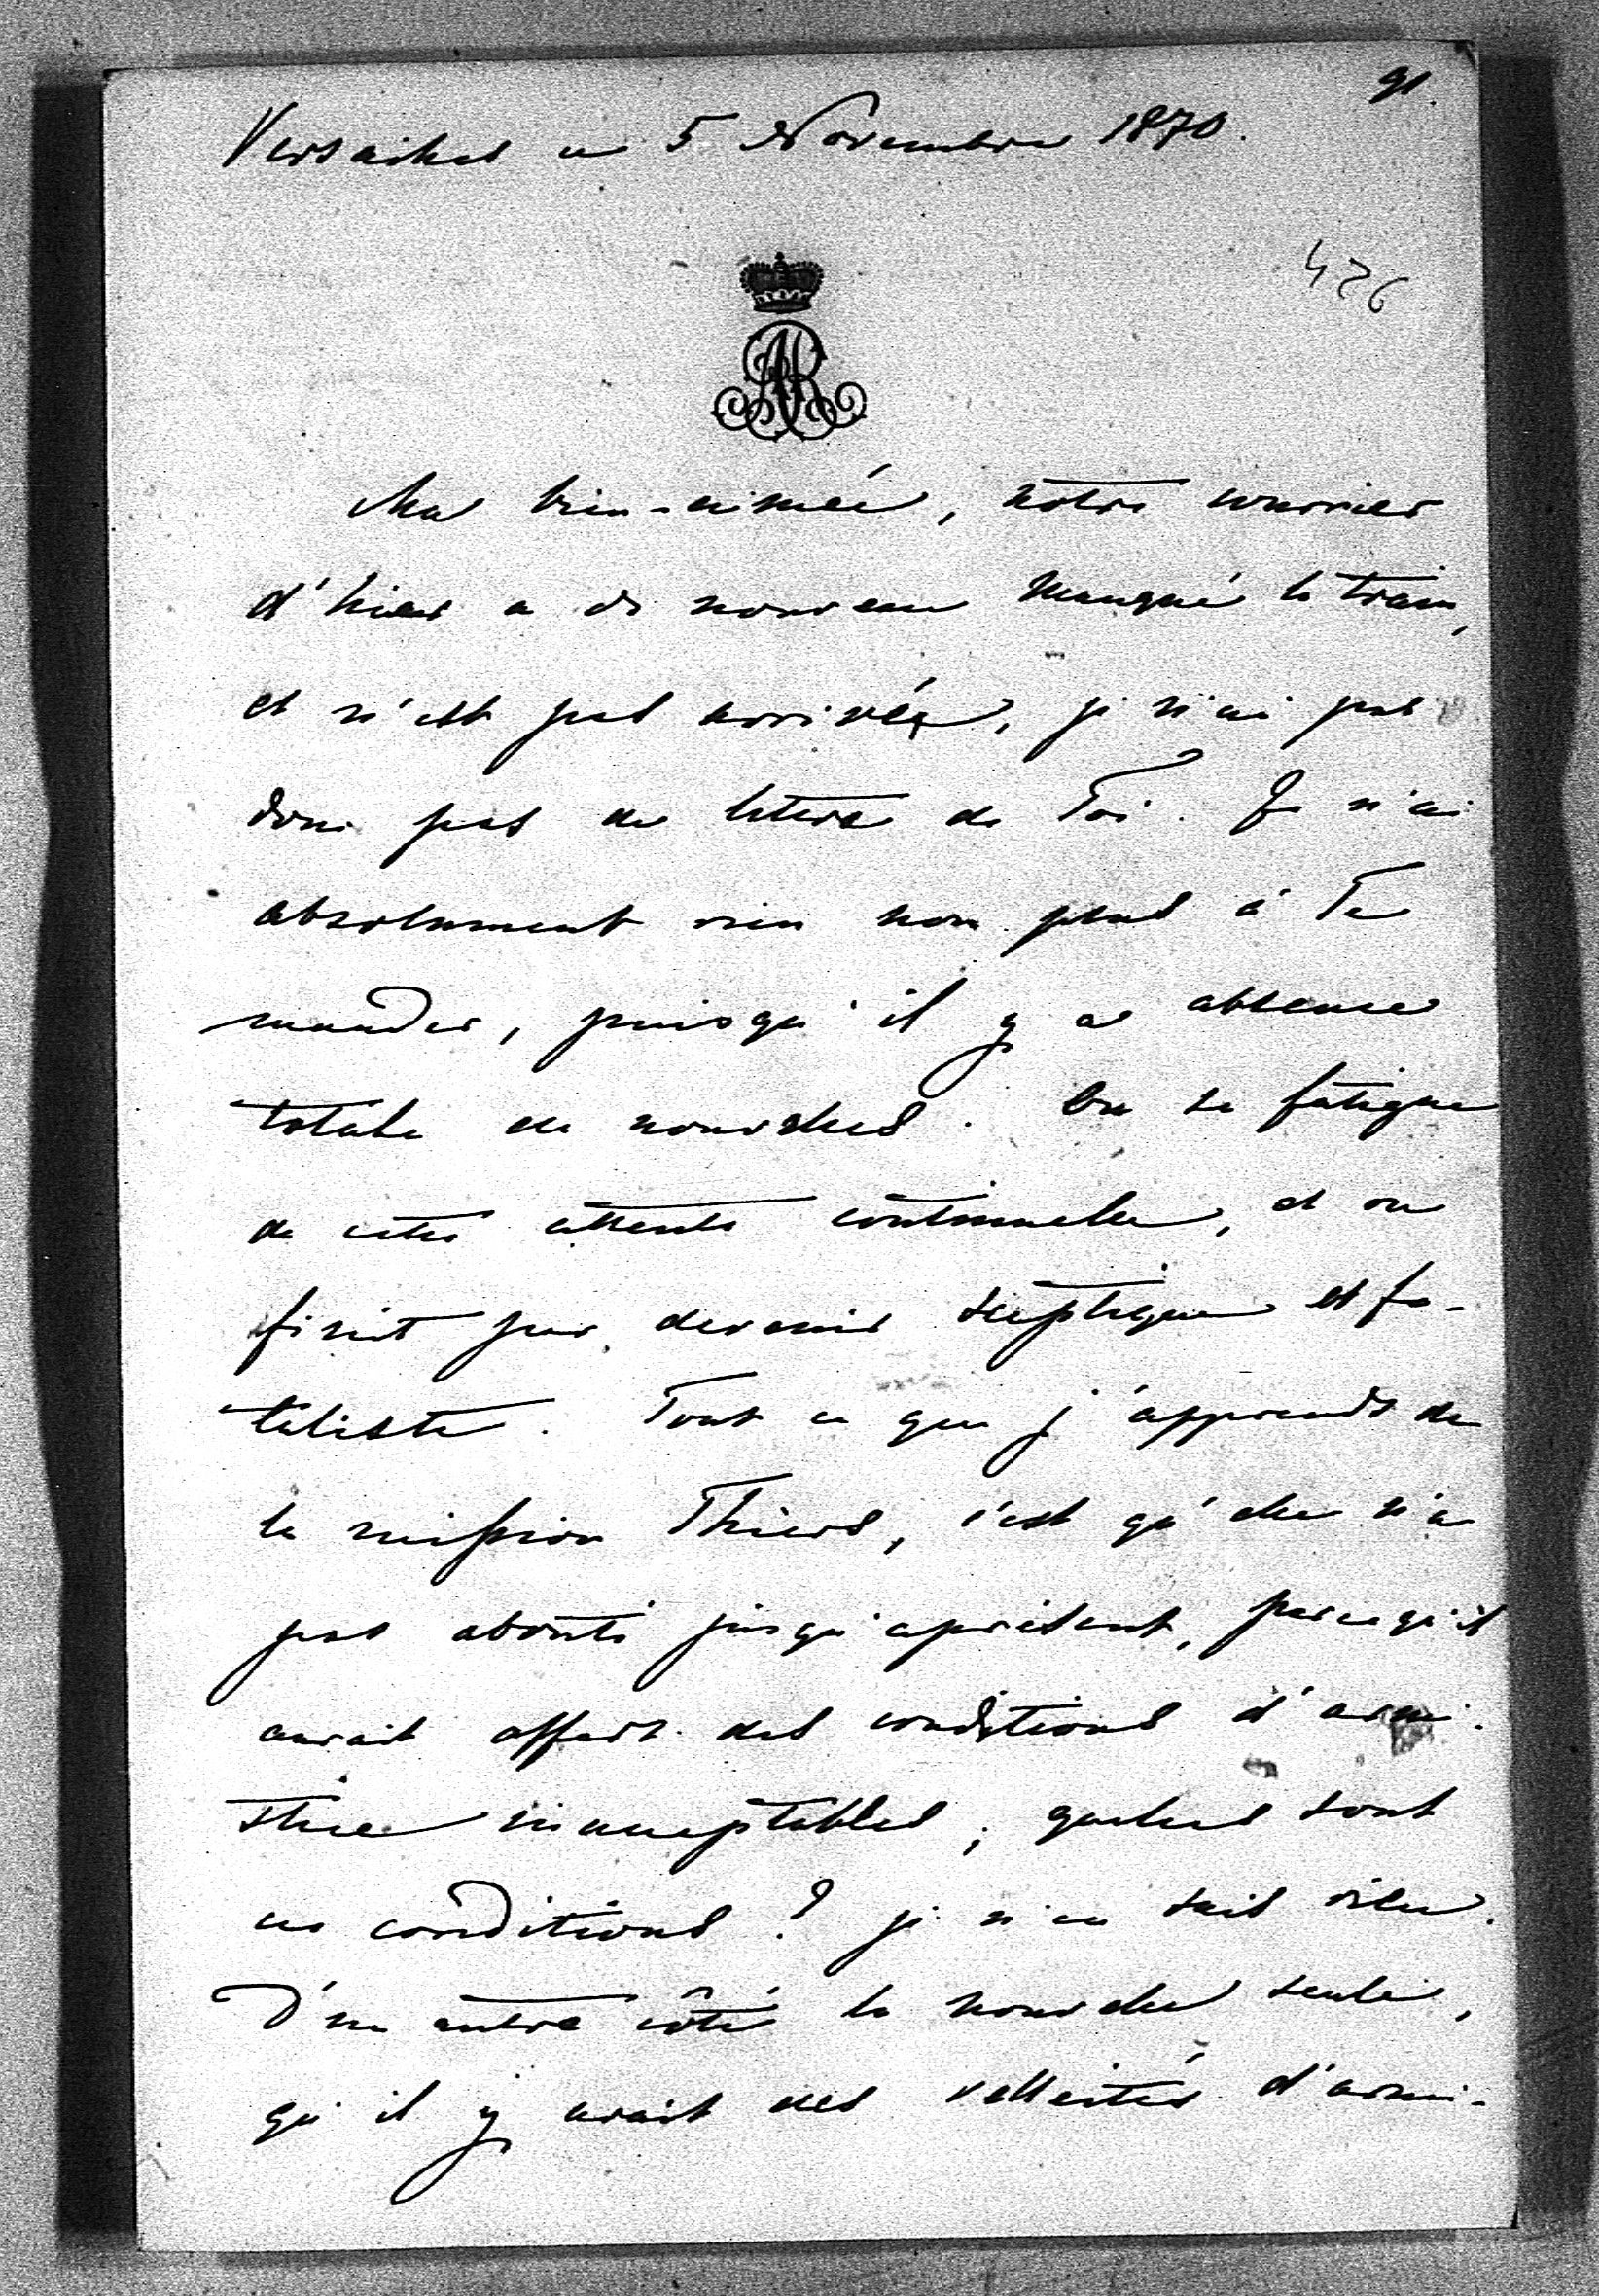 91.
Versailles ce 5 Novembre 1870.
476
AR
Ma bien-aimée, notre courrier
d'hier a de nouveau manqué le train,
et n'est pas arrivé, je n'ai pas
donc pas de lettre de Toi. Je n'ai
absolument rien non plus à Te
mander, puisqu'il y a absence
totale de nouvelles. On se fatigue
de cette attente continuelle, et on
finit par devenir sceptique et fa-
taliste. Tout ce que j'apprends de
la mission Thiers, c'est qu'elle n'a
pas abouti jusqu'àprésent, parcequ'il
aurait offert des conditions d'armi-
stice inacceptables; quelles sont
ces conditions? je n'en sais rien.
D'un autre côté la nouvelle seule,
qu'il y avait des velleités d'armi-